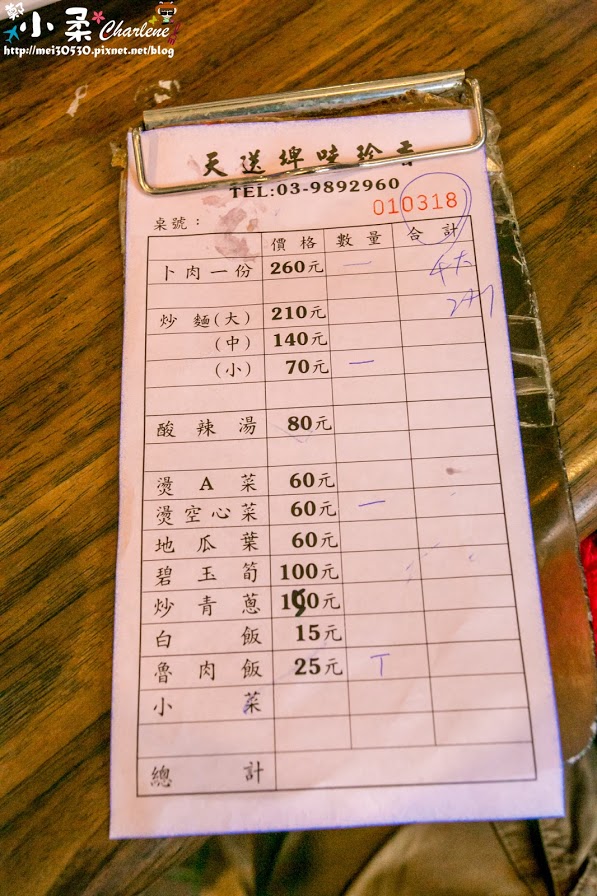 鄭小柔Charlene
http://mei30530.pixnet.net/blog
天送埤味珍香
TEL:03-9892960
010318
桌號：
價格 數量 合計
卜肉一份 260元 一
4大
2小
炒麵(大) 210元
(中) 140元
(小) 70元 一
酸辣湯 80元
燙A菜 60元
燙空心菜 60元 一
地瓜葉 60元
碧玉筍 100元
炒青蔥 150元
白飯 15元
魯肉飯 25元 T
小菜
總計